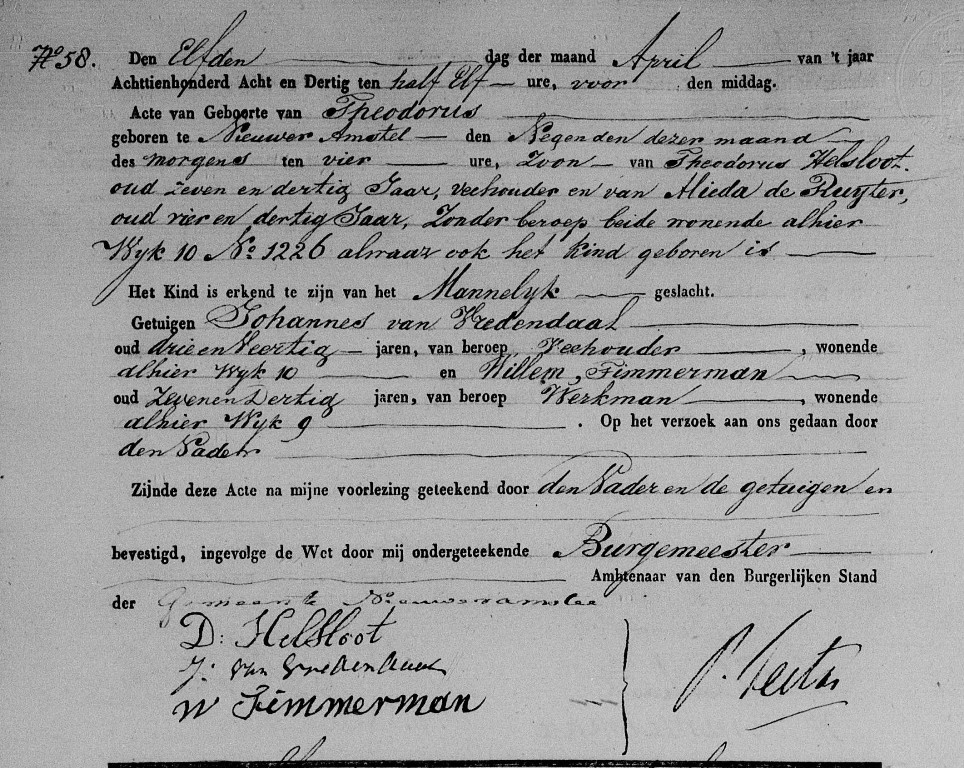 No 58. Den Elfden dag der maand April van 't jaar
Achttienhonderd Acht en Dertig ten half Elf ure, voor den middag.
Acte van Geboorte van Theodorus
geboren te Nieuwer Amstel den Negenden dezer maand
des morgens ten vier ure, Zoon van Theodorus Helsloot.
oud zeven en dertig Jaar, veehouder en van Alieda de Ruyter,
oud vier en dertig Jaar, Zonder beroep beide wonende alhier
Wyk 10 No 1226 alwaar ook het kind geboren is
Het Kind is erkend te zijn van het Mannelyk geslacht.
Getuigen Johannes van Vredendaal
oud drie en Veertig jaren, van beroep Veehouder, wonende
alhier Wyk 10 en Willem Timmerman
oud Zeven en Dertig jaren, van beroep Werkman, wonende
alhier Wyk 9. Op het verzoek aan ons gedaan door
den Vader
Zijnde deze Acte na mijne voorlezing geteekend door den Vader en de getuigen en
bevestigd, ingevolge de Wet door mij ondergeteekende Burgemeester
Ambtenaar van den Burgerlijken Stand
der Gemeente Nieuweramstel
D: Helsloot
J: van Vredendaal
W Timmerman